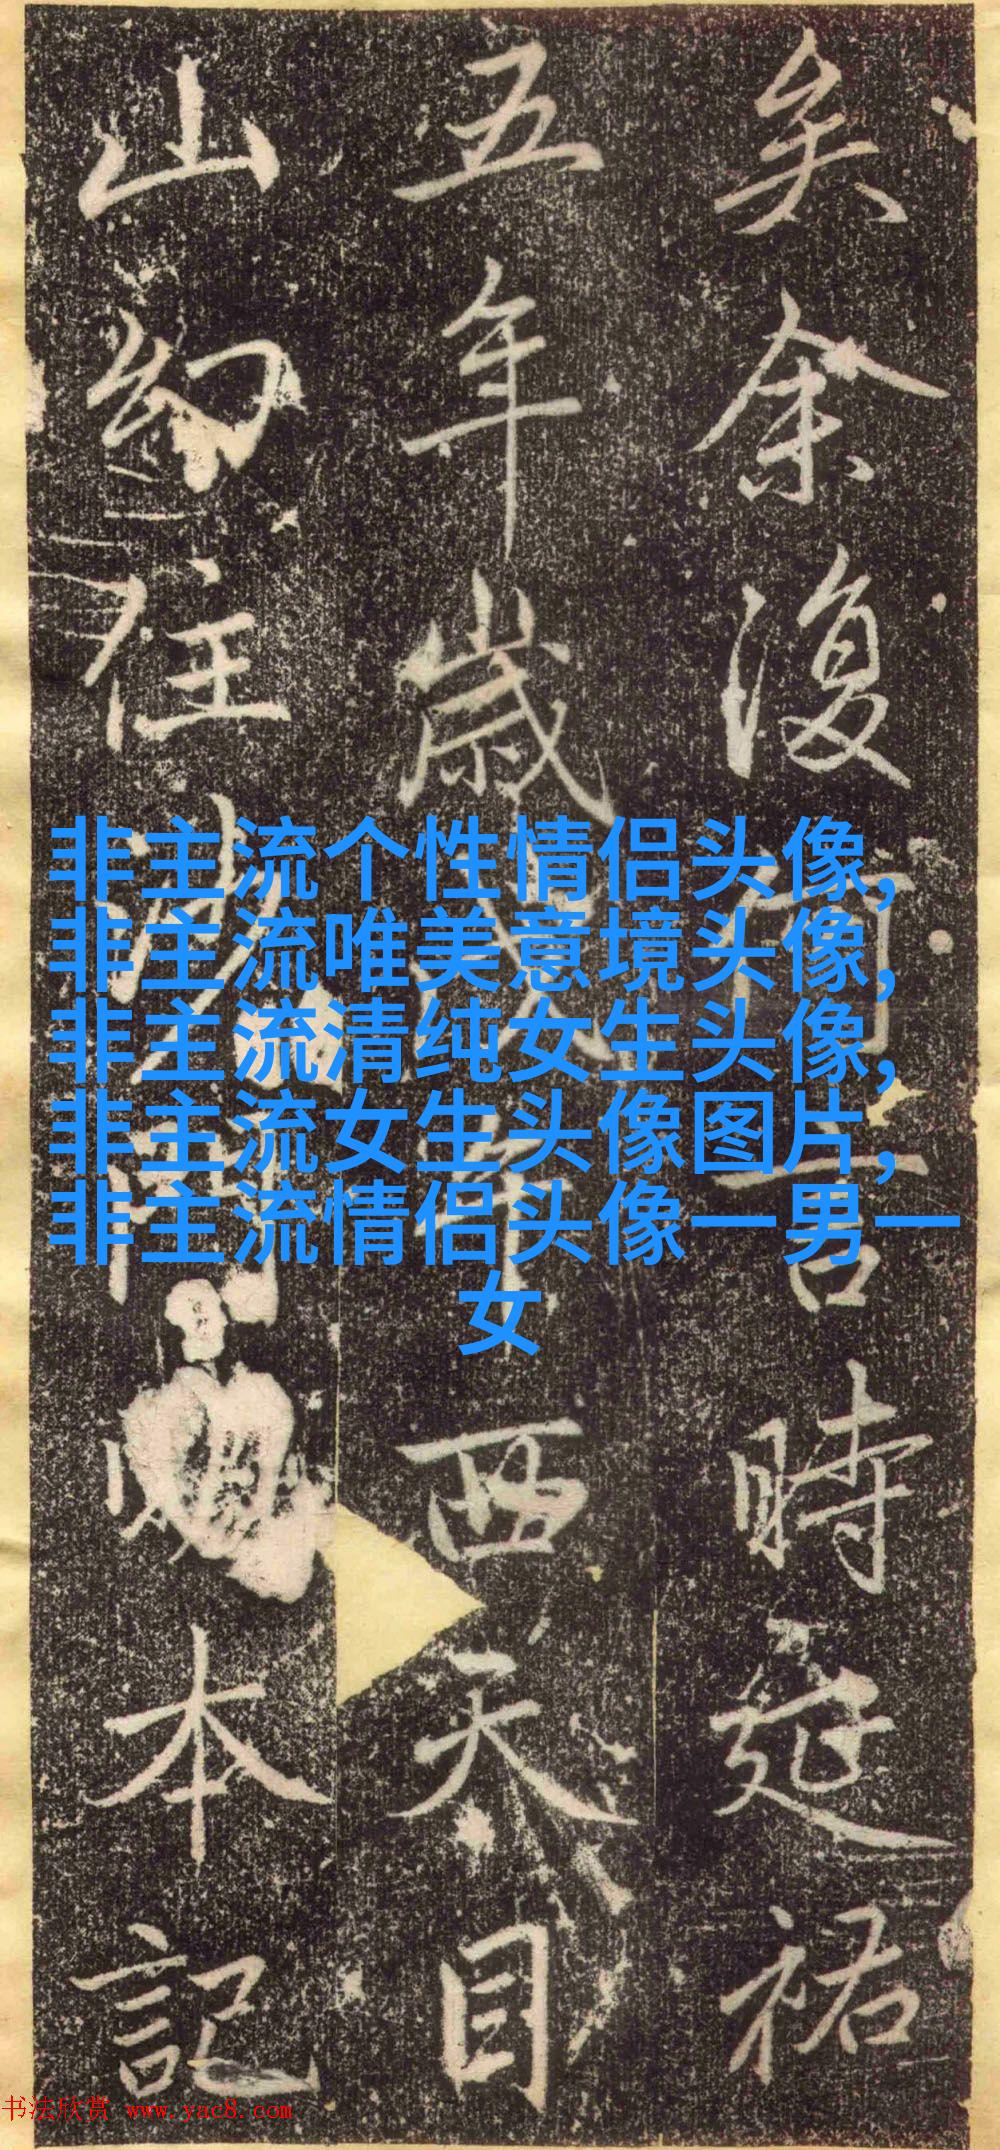 矣余復何言時延祐
五年歲戊午西天目
山幻住沙門明本記
非主流个性情侣头像,
非主流唯美意境头像,
非主流清纯女生头像,
非主流女生头像图片,
非主流情侣头像一男一
女
书法欣赏 www.yac8.com